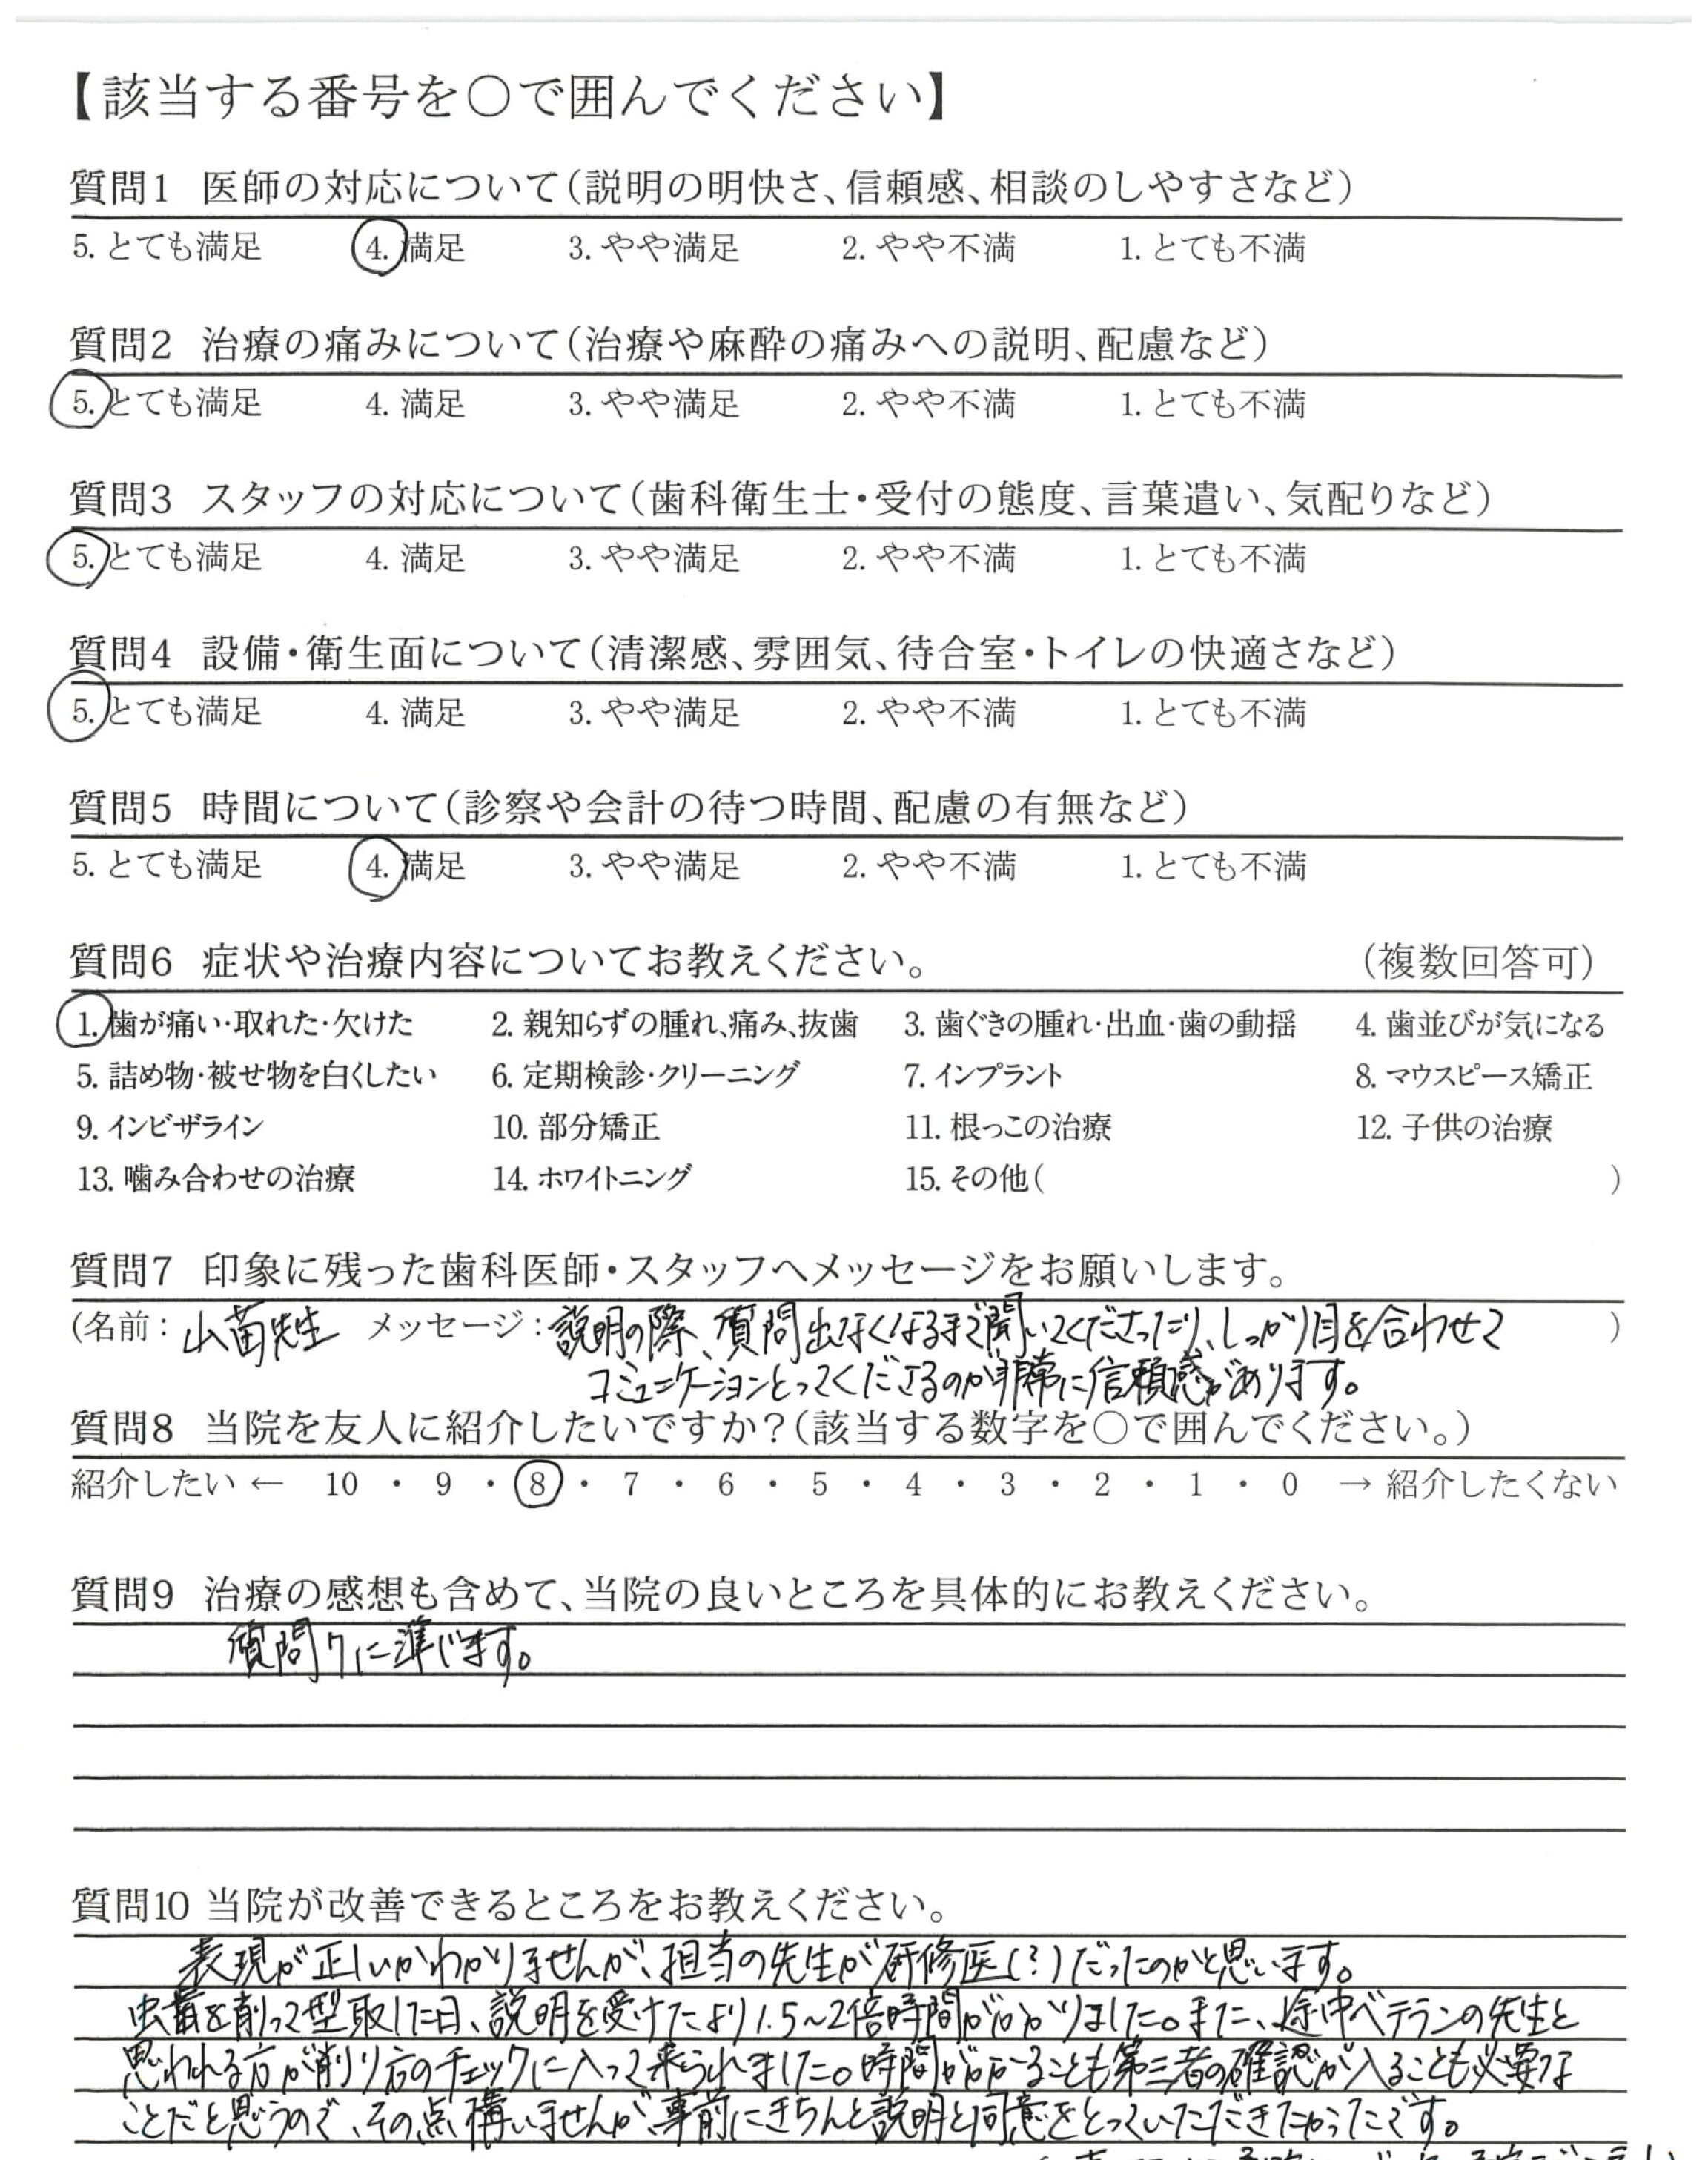 【該当する番号を○で囲んでください】
質問1 医師の対応について(説明の明快さ、信頼感、相談のしやすさなど)
5. とても満足 4. 満足 3. やや満足 2. やや不満 1. とても不満
質問2 治療の痛みについて(治療や麻酔の痛みへの説明、配慮など)
5. とても満足 4. 満足 3. やや満足 2. やや不満 1. とても不満
質問3 スタッフの対応について(歯科衛生士・受付の態度、言葉遣い、気配りなど)
5. とても満足 4. 満足 3. やや満足 2. やや不満 1. とても不満
質問4 設備・衛生面について(清潔感、雰囲気、待合室・トイレの快適さなど)
5. とても満足 4. 満足 3. やや満足 2. やや不満 1. とても不満
質問5 時間について(診察や会計の待つ時間、配慮の有無など)
5. とても満足 4. 満足 3. やや満足 2. やや不満 1. とても不満
質問6 症状や治療内容についてお教えください。 (複数回答可)
1. 歯が痛い・取れた・欠けた 2. 親知らずの腫れ、痛み、抜歯 3. 歯ぐきの腫れ・出血・歯の動揺 4. 歯並びが気になる
5. 詰め物・被せ物を白くしたい 6. 定期検診・クリーニング 7. インプラント 8. マウスピース矯正
9. インビザライン 10. 部分矯正 11. 根っこの治療 12. 子供の治療
13. 噛み合わせの治療 14. ホワイトニング 15. その他( )
質問7 印象に残った歯科医師・スタッフへメッセージをお願いします。
(名前: 山苗先生 メッセージ: 説明の際、質問出なくなるまで聞いてくださったり、しっかり目を合わせて )
コミュニケーションとってくださるのが非常に信頼感があります。
質問8 当院を友人に紹介したいですか?(該当する数字を○で囲んでください。)
紹介したい ← 10 ・ 9 ・ 8 ・ 7 ・ 6 ・ 5 ・ 4 ・ 3 ・ 2 ・ 1 ・ 0 → 紹介したくない
質問9 治療の感想も含めて、当院の良いところを具体的にお教えください。
質問7に準じます。
質問10 当院が改善できるところをお教えください。
表現が正しいかわかりませんが、担当の先生が研修医(?)だったのかと思います。
虫歯を削って型取した日、説明を受けたより1.5~2倍時間がかかりました。また、途中ベテランの先生と
思われる方が削り方のチェックに入って来られました。時間がかかることも第三者の確認が入ることも必要な
ことだと思うので、その点構いませんが、事前にきちんと説明と同意をとっていただきたかったです。